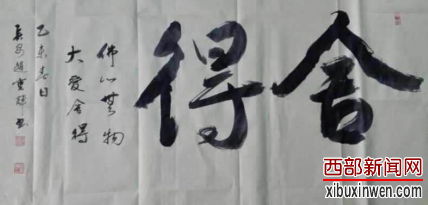 舍得
佛心無物
大愛舍得
乙未春日
西部新闻网
xibuxinwen.com